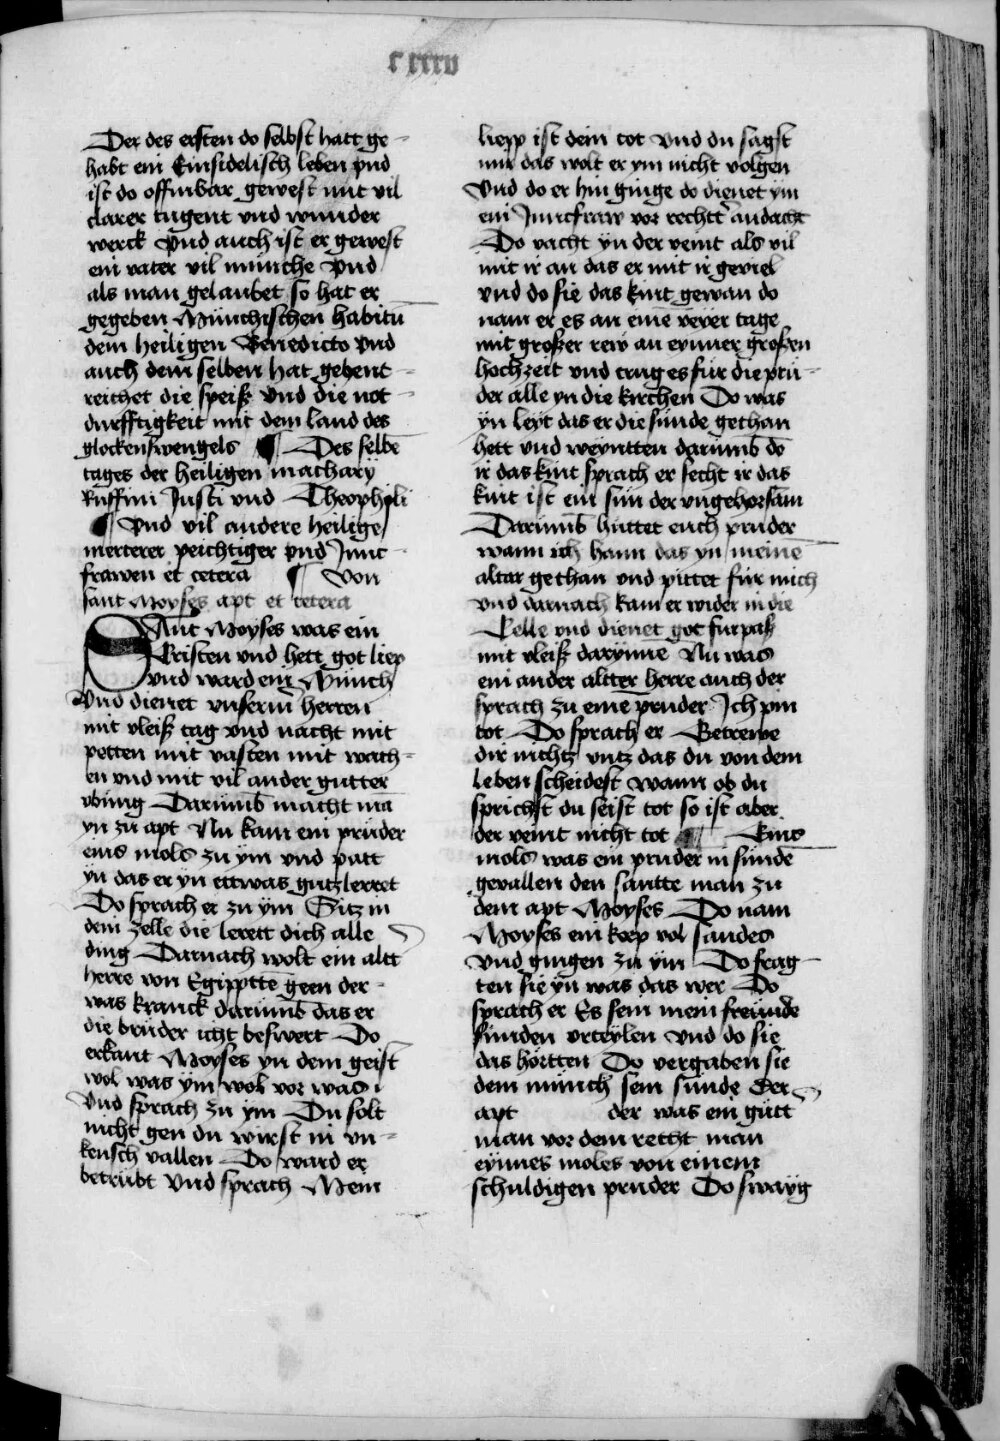 c xxxv
Der des ersten do selbst hatt ge-
habt ein Einsidelisch leben vnd
ist do offinbar gewest mit vil
clarer tugent vnd wunder
werck vnd auch ist er gewest
ein vater vil münche vnd
als man gelaubet so hat er
gegeben Münchischen habitū
dem heiligen Benedicto vnd
auch dem selben hat gehent-
reichet die speiß vnd die not-
durfftigkeit mit dem laud des
glockenswengels ¶ Des selbē
tages der heiligen machary
Ruffini Justi vnd Theophili
¶ vnd vil andere heilige
merterer peichtiger vnd Junc-
frawen et cetera ¶ Von
sant Moyses apt et cetera
SAnt Moyses was ein
Cristen vnd hett got liep
vnd ward ein Münch
vnd dienet vnserm herren
mit vleiß tag vnd nacht mit
petten mit vasten mit wach-
en vnd mit vil ander gutter
vbung Darūmb macht mā
yn zu apt Nu kam ein prüder
eins mols zu ym vnd patt
yn das er yn ettwas gutz lerret
Do sprach er zu ym Sitz in
dein zelle die lerett dich alle
ding Darnach wolt ein altt
herre von Egipptē geen der-
was kranck darūmb das er
die brüder icht beswert Do
erkant Moyses yn dem geist
wol was ym wol vor was
vnd sprach zu ym Du solt
nicht gen du wirst in vn-
keusch vallen Do ward er
betrübt vnd sprach Mein
liepp ist dem tot vnd du sagst
mir das wolt er ym nicht volgen
vnd do er hin ginge do dienet ym
ein Juncfraw vor rechtt andacht
Do vacht yn der veint als vil
mit ir an das er mit ir geviel
vnd do sie das kint gewan do
nam er es an einē veyer tage
mit großer rew an eynner großen
hochzeit vnd trug es für die prü-
der alle yn die kirchen Do was
yn leyt das er die sünde gethan
hett vnd weyntten darūmb do
ir das kint sprach er secht ir das
kint ist ein sun der vngehorsam
Darūmb hüttet euch pruder
wann ich hann das yn meinē
altar gethan vnd pittet für mich
vnd darnach kam er wider in die
Celle vnd dienet got furpaß
mit vleiß darynne Nu was
ein ander altter herre auch der
sprach zu einē pruder Ich pin
tot Do sprach er Getrewe
dir nichtz vntz das du von dem
leben scheidest wann ob du
sprichst du seist tot so ist aber
der veint nicht tot ¶ Eins
mols was ein pruder in sündē
gevallen den santte man zu
dem apt Moyses Do nam
Moyses ein korp vol sandes
vnd gingen zu ym Do frag-
ten sie yn was das wer Do
sprach er Es sein mein freünde
sünden vrteylen vnd do sie
das hörtten Do vergaben sie
dem münch sein sünde Der
apt der was ein gütt
man vor dem rechtt man
eynnes moles von einem
schuldigen pruder Do swayg